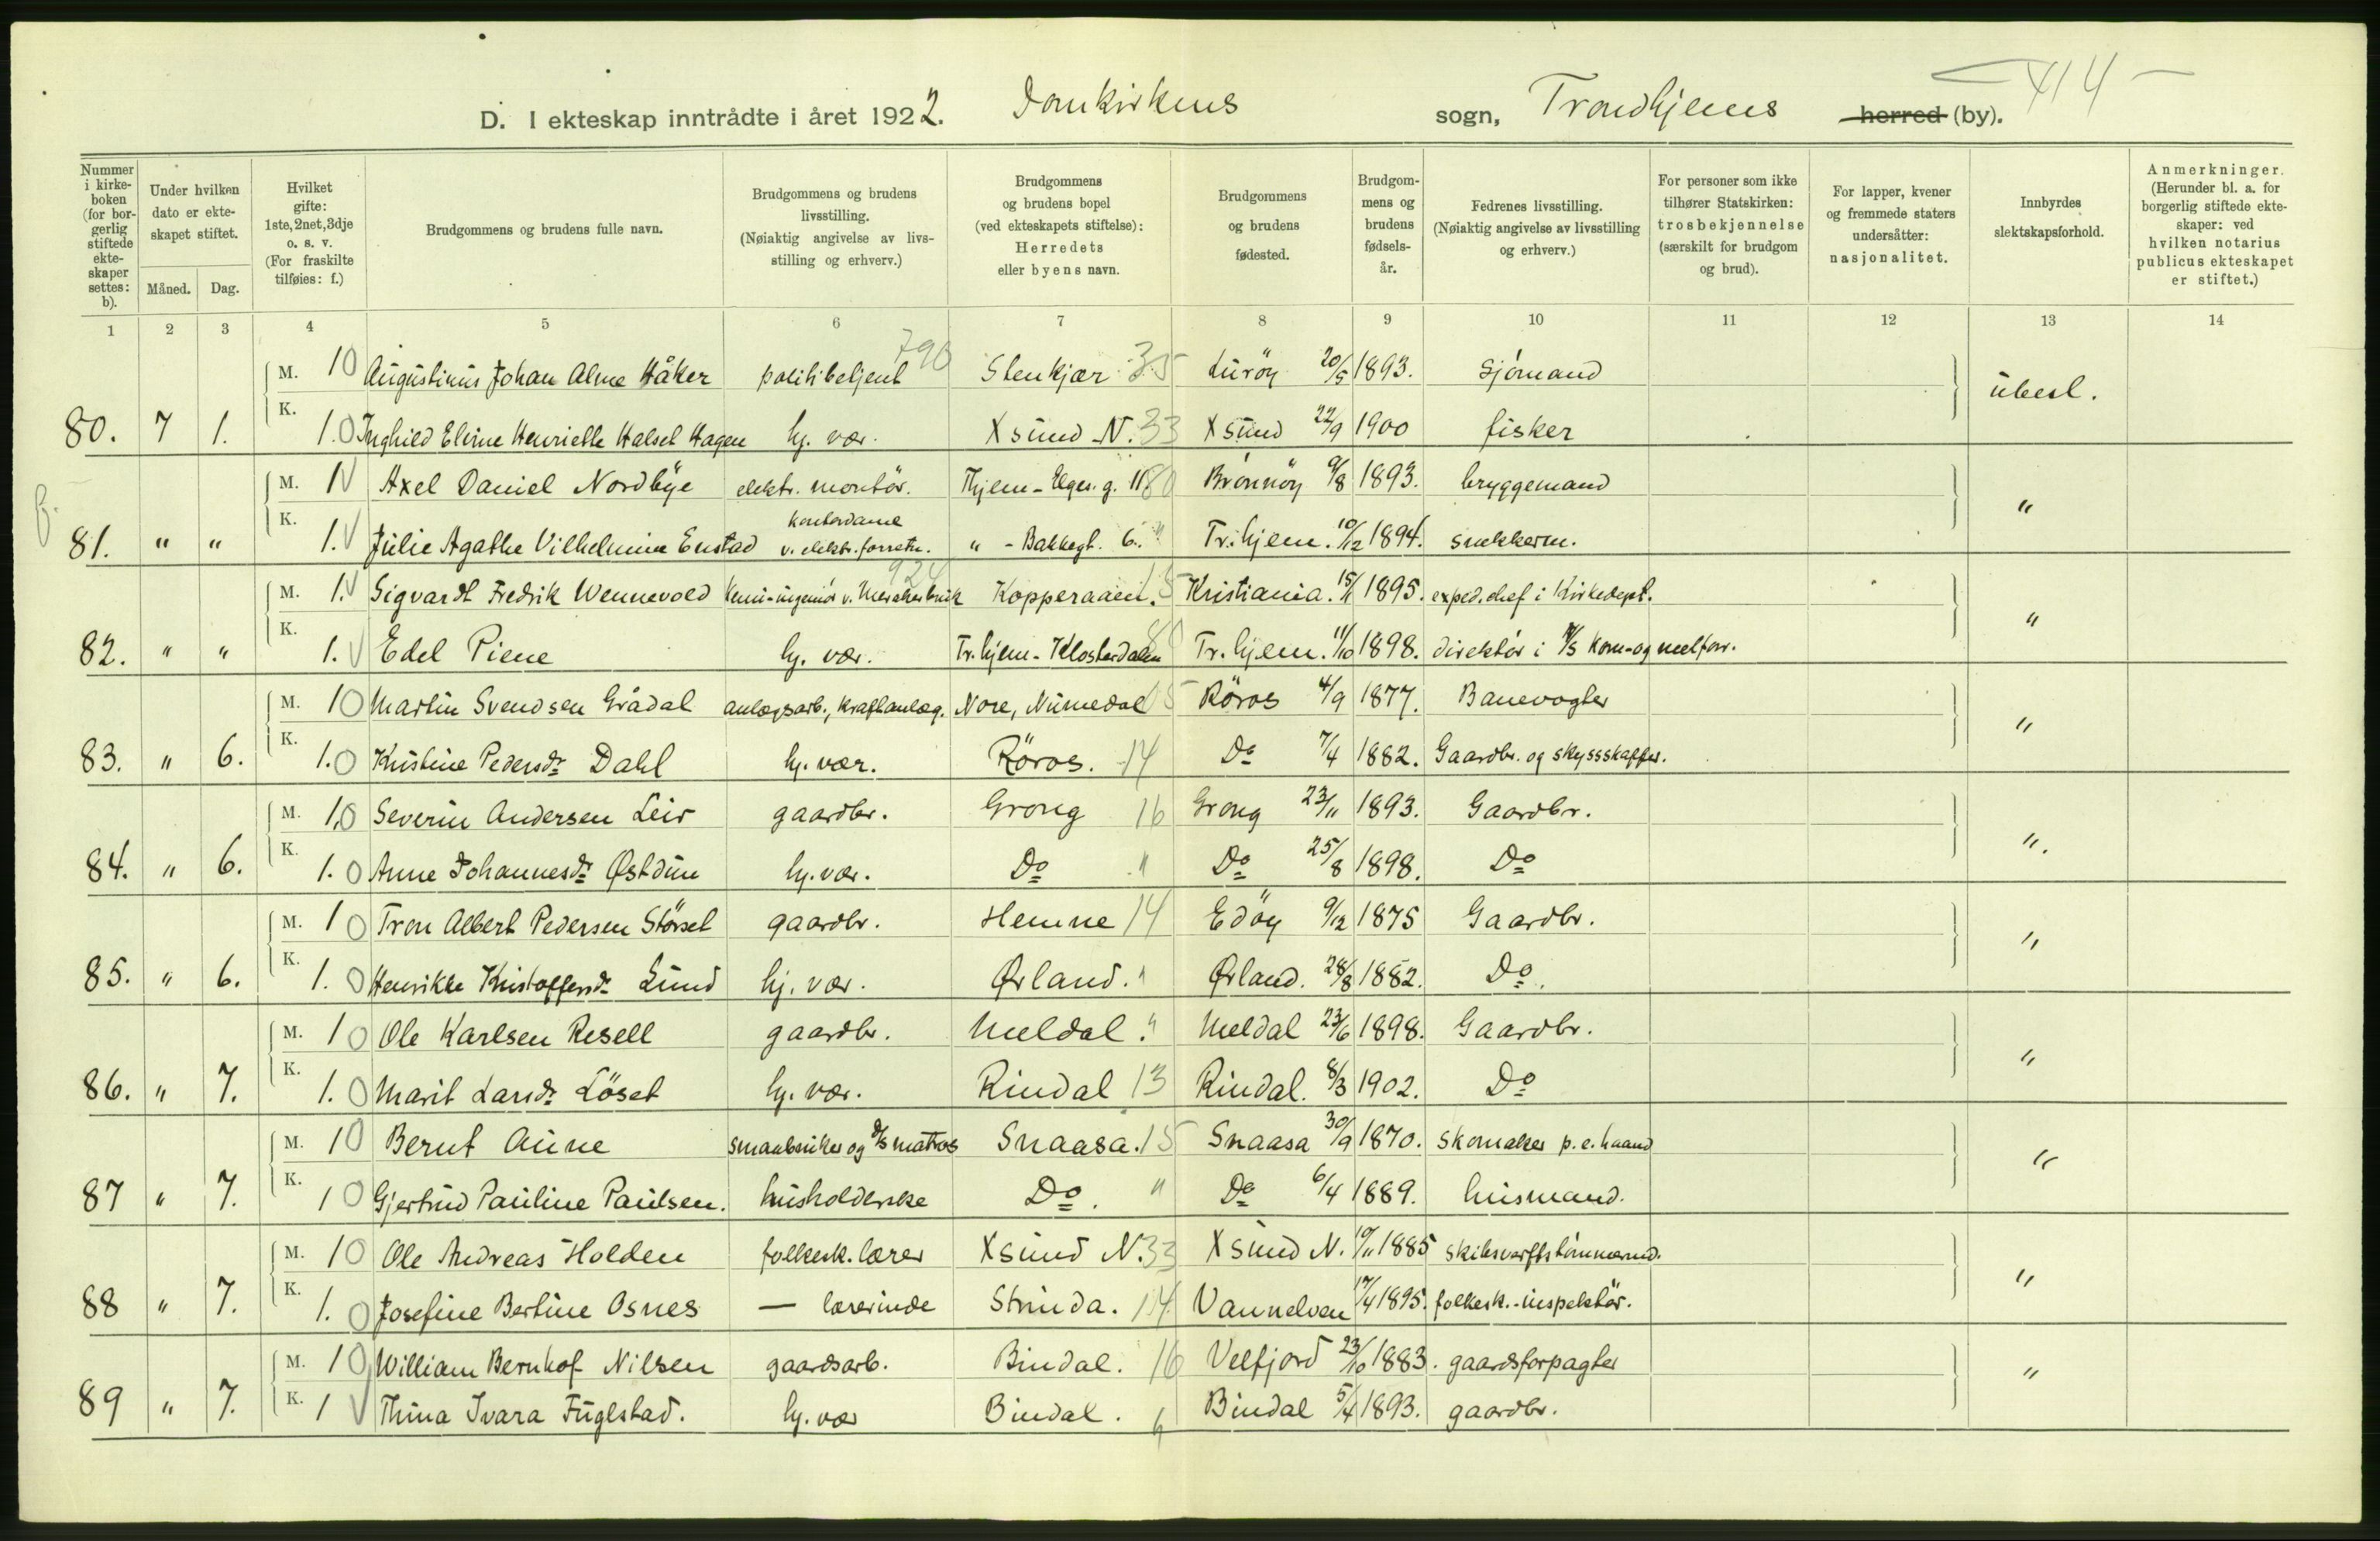 414
D. I ekteskap inntrådte i året 1922. Domkirkens sogn, Trondhjems herred (by).
Nummer i kirkeboken (for borgerlig stiftede ekteskaper settes: b).
Under hvilken dato er ekteskapet stiftet.
Måned. Dag.
Hvilket gifte: 1ste, 2net, 3dje o. s. v. (For fraskilte tilføies: f.)
Brudgommens og brudens fulle navn.
Brudgommens og brudens livsstilling. (Nøiaktig angivelse av livsstilling og erhverv.)
Brudgommens og brudens bopel (ved ekteskapets stiftelse): Herredets eller byens navn.
Brudgommens og brudens fødested.
Brudgommens og brudens fødselsår.
Fedrenes livsstilling. (Nøiaktig angivelse av livsstilling og erhverv.)
For personer som ikke tilhører Statskirken: trosbekjennelse (særskilt for brudgom og brud).
For lapper, kvener og fremmede staters undersåtter: nasjonalitet.
Innbyrdes slektskapsforhold.
Anmerkninger. (Herunder bl. a. for borgerlig stiftede ekteskaper: ved hvilken notarius publicus ekteskapet er stiftet.)
1 2 3 4 5 6 7 8 9 10 11 12 13 14
M. 10 Augustinus Johan Alme Håker politibetjent 790 Stenkjær 35 Luröy 20/5 1893. Sjömand ubesl.
80. 7 1. K. 1.0 Inghild Elvine Henriette Halsel Hagen hj. vær. Xsund N. 33 Xsund 22/9 1900 fisker
M. 1V Axel Daniel Nordbye elektr. montör. Thjem - Elges. g. 11 80 Brönnöy 9/8 1893. bryggemand "
81. " " K. 1.V Julie Agathe Vilhelmine Enstad kontordame v. elektr. forretn. " - Bakkegt. 6. " Tr.hjem. 10/12 1894. snekkerm.
M. 1.V Sigvardt Fredrik Wennevold Kemi-ingeniör v. Meraker bruk 924 Kopperaaen. 15 Kristiania. 15/1 1895. exped.chef i Kirkedept. "
82. " " K. 1.V Edel Piene hj. vær. Tr.hjem - Klosterdalen 80 Tr.hjem. 11/10 1898. direktör i A/S Korn- og melforr.
M. 10 Martin Svendsen Grådal anlægsarb., kraftanlæg. Nore, Numedal 5 Röros 4/9 1877. Banevogter "
83. " 6. K. 1.0 Kristine Pedersdr Dahl hj. vær. Röros. 14 Do 7/4 1882. Gaardbr. og skyssskaffer.
M. 1.0 Severin Andersen Leir gaardbr. Grong 16 Grong 23/11 1893. Gaardbr. "
84. " 6. K. 1.0 Anne Johannesdr Østdun hj. vær. Do " Do 25/8 1898. Do
M. 10 Tron Albert Pedersen Störset gaardbr. Hemne 14 Edöy 9/12 1875 Gaardbr. "
85. " 6. K. 1.0 Henrikke Kristoffersdr Lund hj. vær. Ørland. " Ørland. 28/8 1882. Do.
M. 10 Ole Karlsen Resell gaardbr. Meldal. " Meldal 23/6 1898. Gaardbr. "
86. " 7. K. 1.0 Marit Larsdr Löset hj. vær. Rindal 13 Rindal. 8/3 1902. Do
M. 10 Bernt Aune smaabruker og d/s matros Snaasa. 15 Snaasa 30/9 1870. Skomaker p. e. haand "
87 " 7. K. 10 Gjertrud Pauline Paulsen. husholderske Do. " Do 6/4 1889. husmand.
M. 10 Ole Andreas Holden folkesk. lærer Xsund N. 33 Xsund N. 19/11 1885 skibsverftstömmermd. "
88 " 7. K. 1.0 Josefine Bertine Osnes — lærerinde Strinda. 14 Vannelven 17/4 1895. folkesk.-inspektör.
M. 10 William Bernhof Nilsen gaardsarb. Bindal. 16 Velfjord 23/10 1883. gaardsforpagter "
89 " 7. K. 1V Thina Ivara Fuglstad. hj. vær Bindal. " Bindal 5/4 1893. gaardbr.